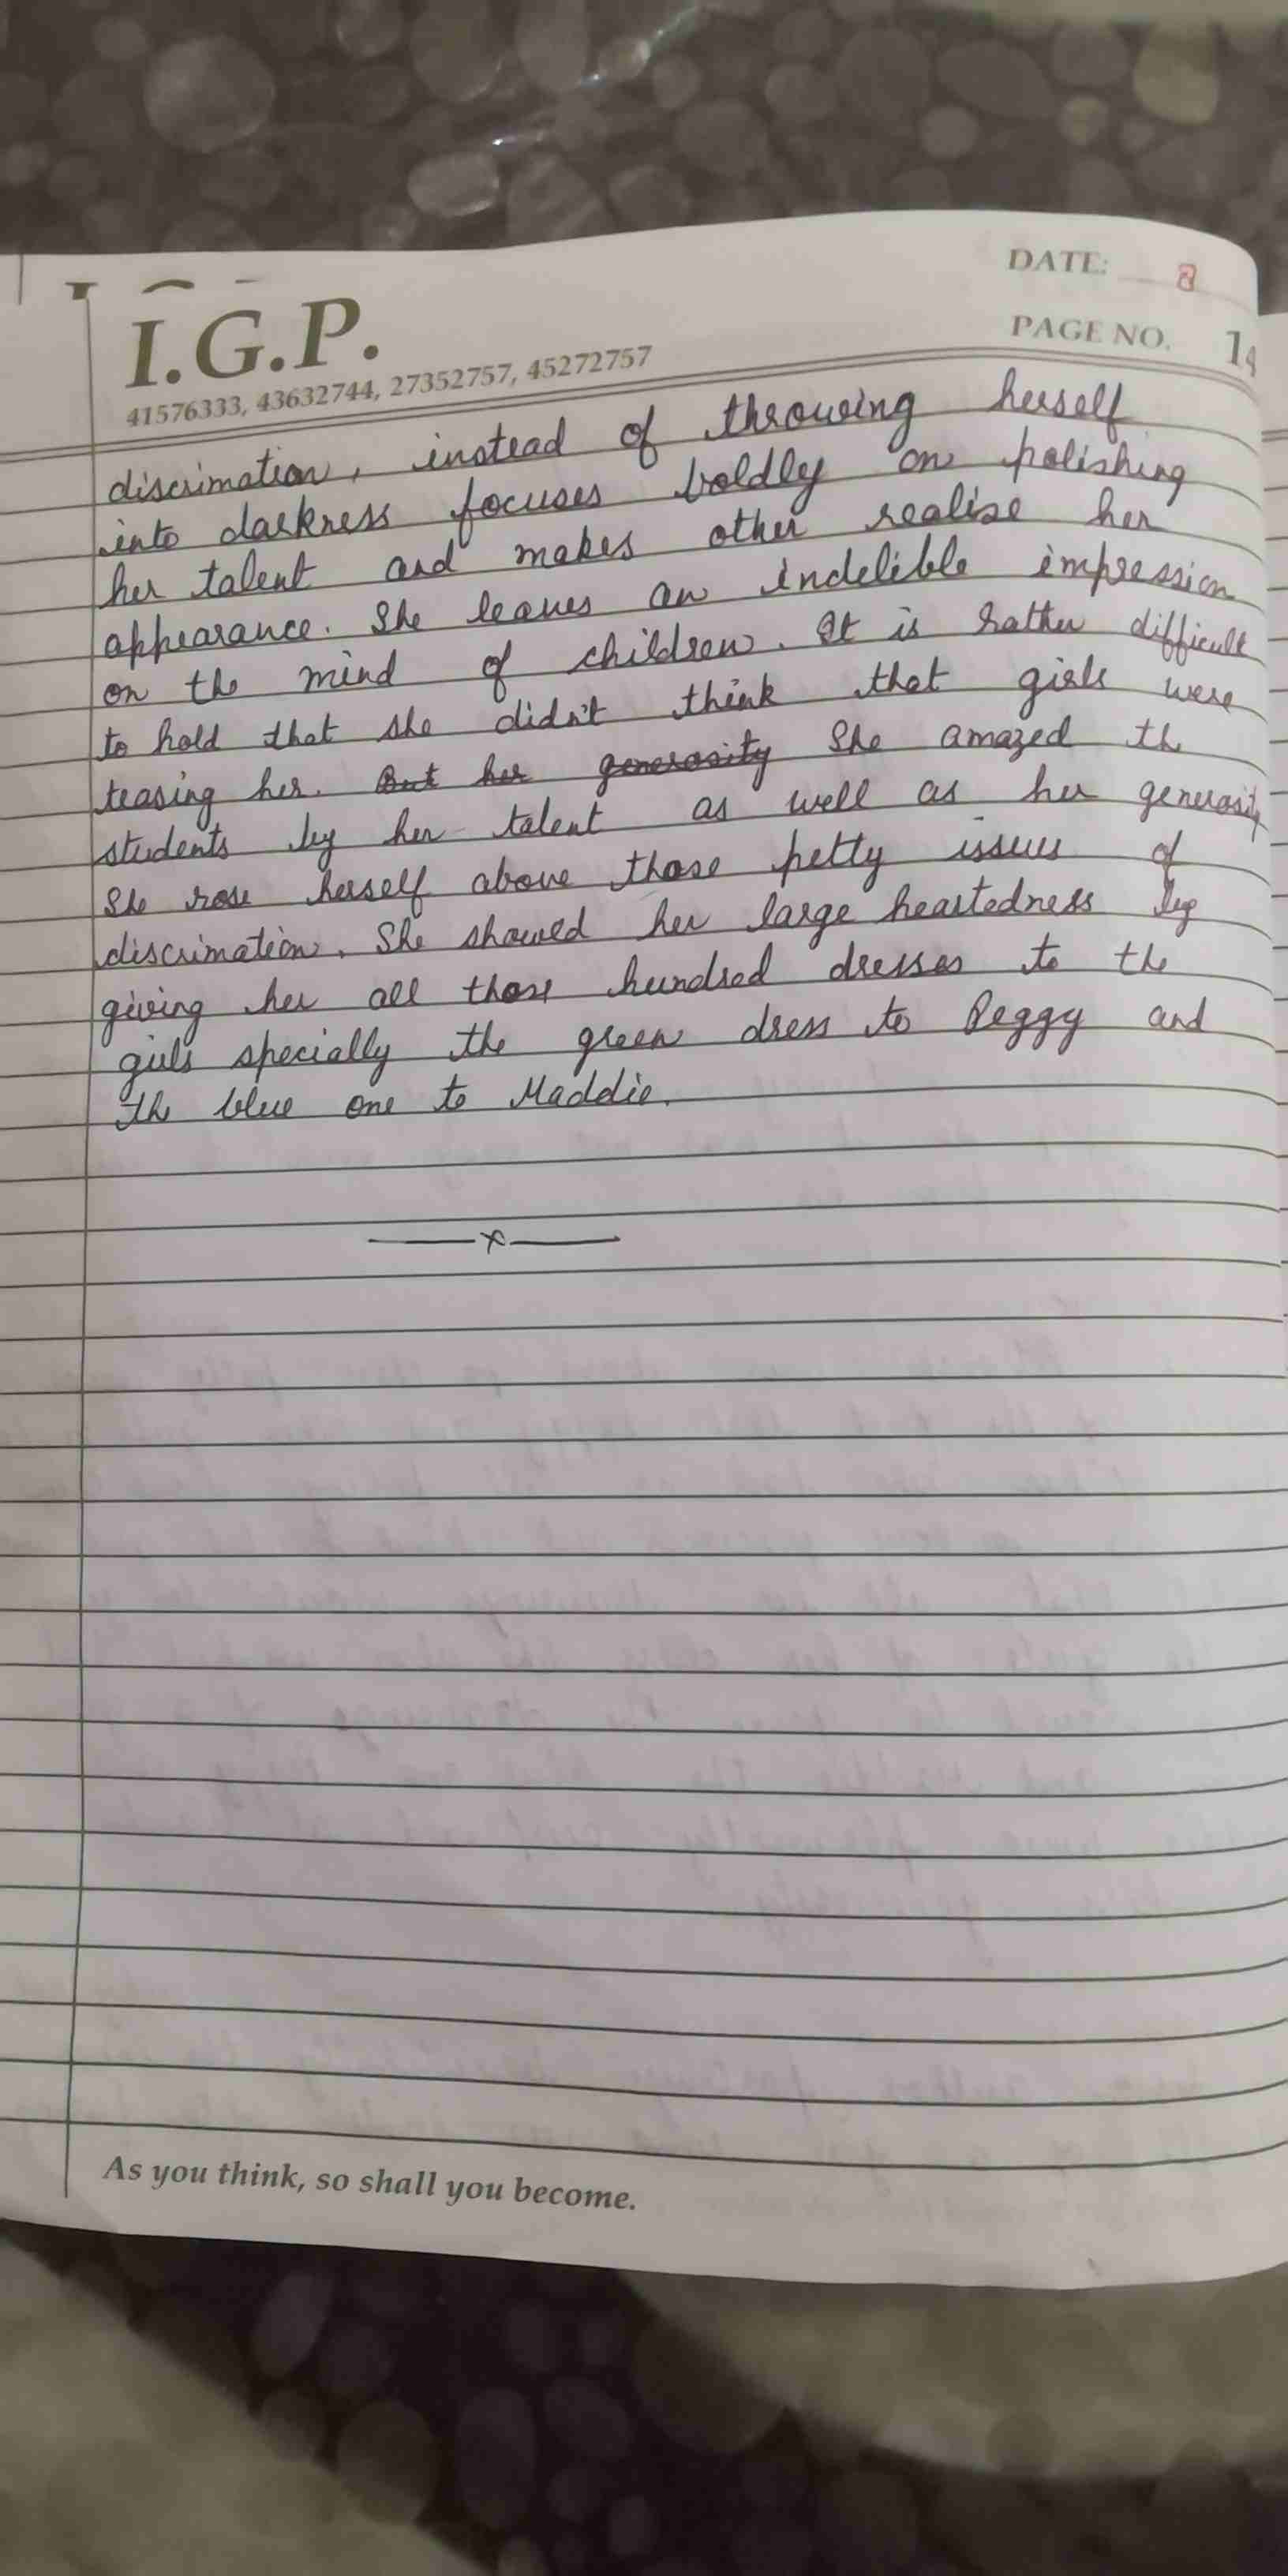 I.G.P.
41576333, 43632744, 27352757, 45272757
DATE: 8
PAGE NO. 14
discrimation, instead of throwing herself
into darkness focuses boldly on polishing
her talent and makes other realise her
appearance. She leaves an indelible impression
on the mind of children. It is rather difficult
to hold that she didn't think that girls were
teasing her. But her generosity She amazed the
students by her talent as well as her generosity
She rose herself above those petty issues of
discrimation. She showed her large heartedness by
giving her all those hundred dresses to the
girls specially the green dress to Peggy and
the blue one to Maddie.
x
As you think, so shall you become.